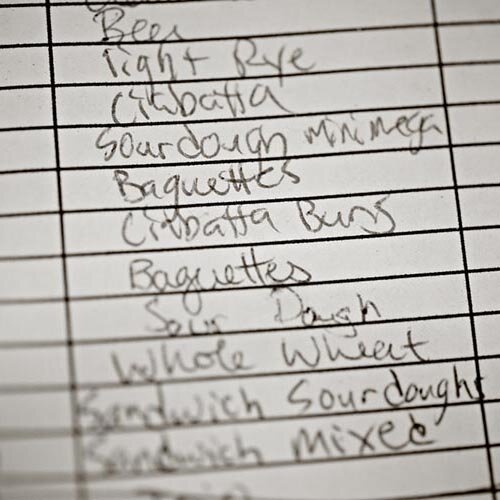 Beer
Light Rye
Ciabatta
Sourdough minimega
Baguettes
Ciabatta Buns
Baguettes
Sour Dough
Whole Wheat
Sandwich Sourdough
Sandwich Mixed